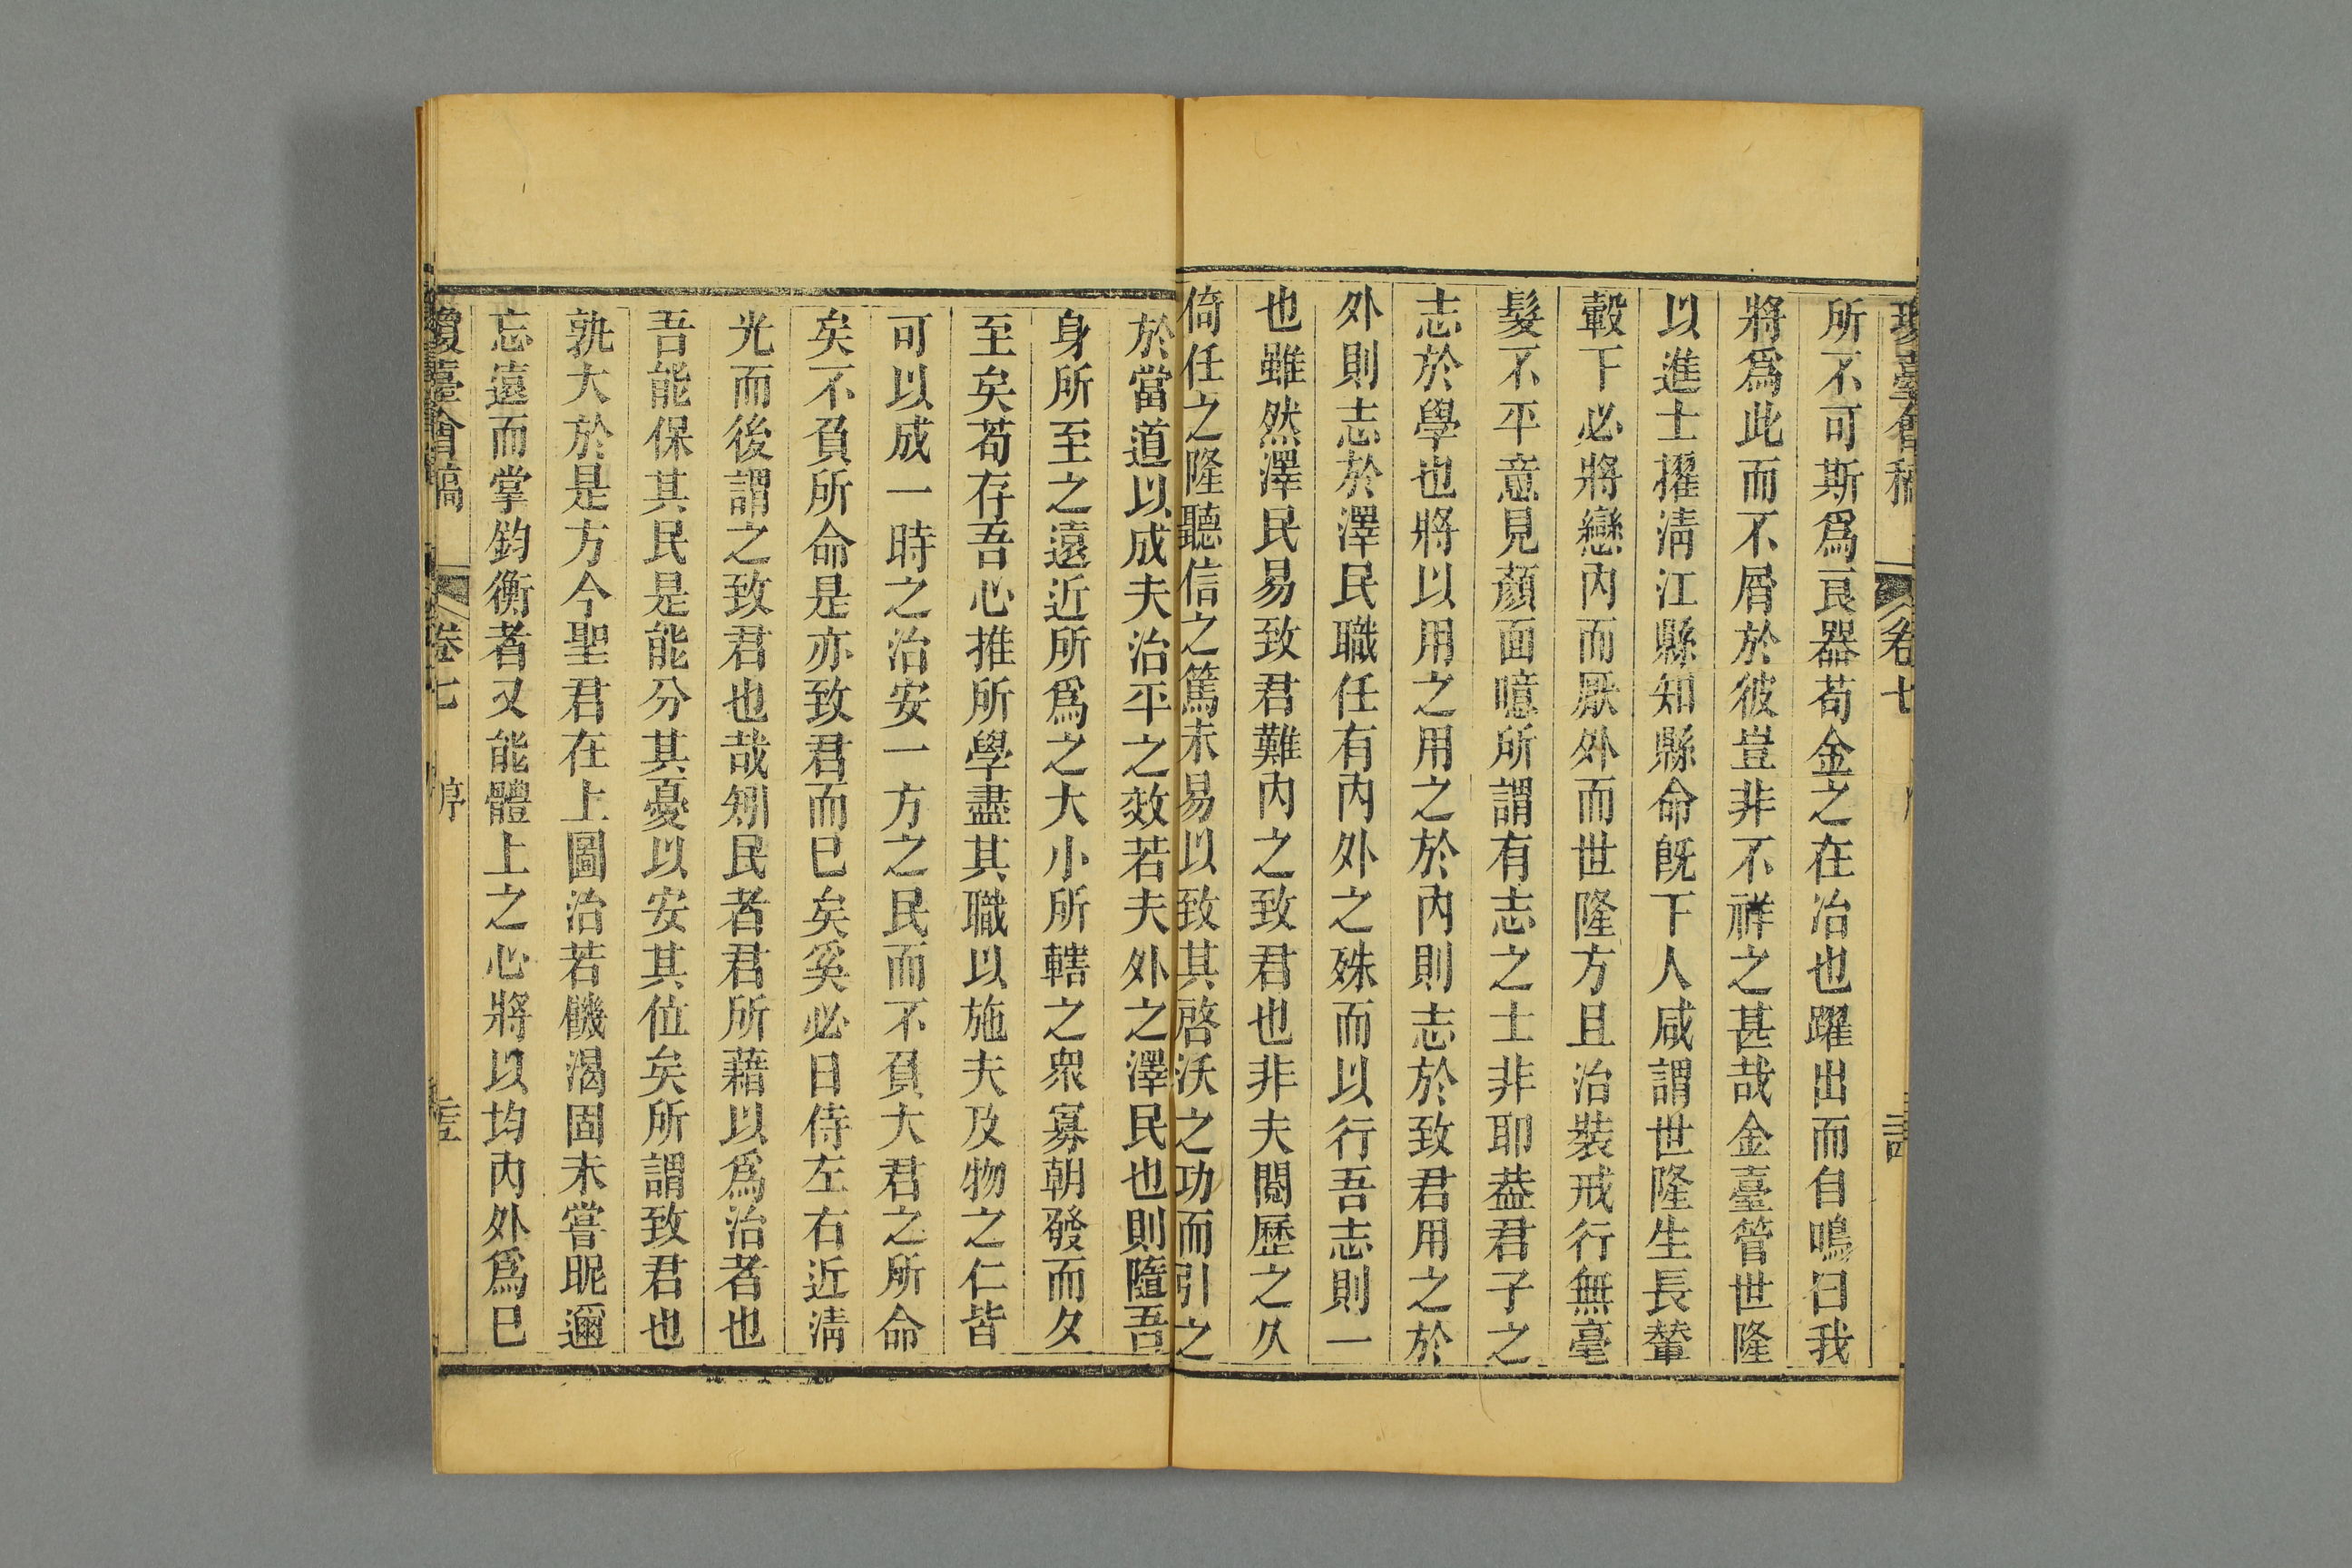 瓊臺會稿 卷七
所不可斯爲良器苟金之在冶也躍出而自鳴曰我
將爲此而不屑於彼豈非不祥之甚哉金臺管世隆
以進士擢淸江縣知縣命旣下人咸謂世隆生長輦
轂下必將戀內而厭外而世隆方且治裝戒行無毫
髮不平意見顏面噫所謂有志之士非耶葢君子之
志於學也將以用之用之於內則志於致君用之於
外則志於澤民職任有內外之殊而以行吾志則一
也雖然澤民易致君難內之致君也非夫閱歷之久
倚任之隆聽信之篤未易以致其啓沃之功而引之
於當道以成夫治平之效若夫外之澤民也則隨吾
身所至之遠近所爲之大小所轄之衆寡朝發而夕
至矣苟存吾心推所學盡其職以施夫及物之仁皆
可以成一時之治安一方之民而不負大君之所命
矣不負所命是亦致君而已矣奚必日侍左右近淸
光而後謂之致君也哉矧民者君所藉以爲治者也
吾能保其民是能分其憂以安其位矣所謂致君也
孰大於是方今聖君在上圖治若饑渴固未嘗昵邇
忘遠而掌鈞衡者又能體上之心將以均內外爲已
瓊臺會稿 卷七 序